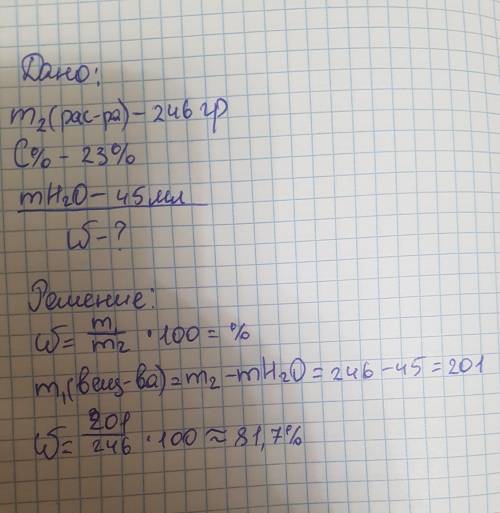 Дано:
m₂(рас-ра) - 246 гр
C% - 23%
mH₂O - 45 мл
ω - ?
Решение:
ω = m₁/m₂ · 100 = %
m₁(вещ-ва) = m₂ - mH₂O = 246 - 45 = 201
ω = 201/246 · 100 ≈ 81,7%